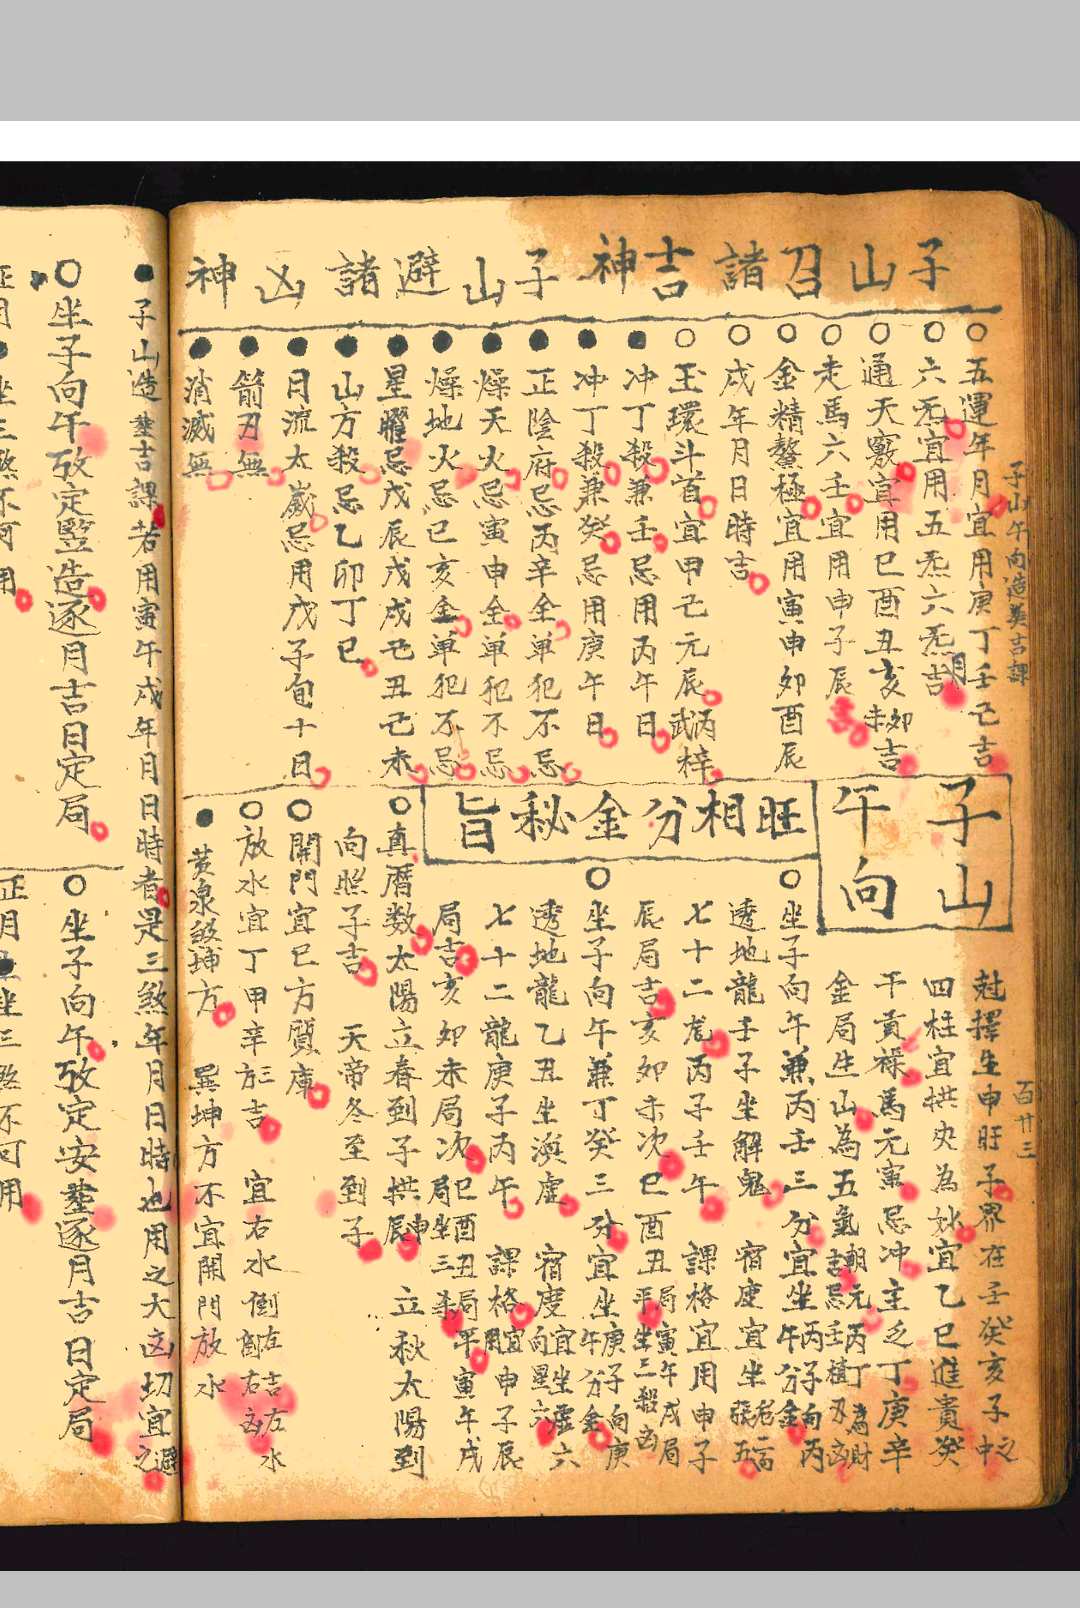 子山午向造葬吉課
百廿三
子山召諸吉神
子山避諸凶神
○五運年月宜用庚丁壬乙吉
○六炁宜用五炁六炁吉月
○通天竅宜用巳酉丑亥卯未吉
○走馬六壬宜用申子辰
○金精鰲極宜用寅申卯酉辰戌年月日時吉
○玉環斗首宜甲己元辰
●冲丁殺兼壬忌用丙午日
●冲丁殺兼癸忌用庚午日
●正陰府忌丙辛全單犯不忌
●燥天火忌寅申全單犯不忌
●燥地火忌巳亥全單犯不忌
●星曜忌戊辰戊戌己丑己未
●山方殺忌乙卯丁巳
●月流太歲忌用戊子旬十日
●箭刃無
●消滅無
子山
午向
旺相分金秘旨
尅擇生申旺子界在壬癸亥子之中
四柱宜拱夾為妙宜乙巳進貴癸
干貴祿馬元寅忌冲主之丁庚辛
金局生山為五氣朝元丙丁為財
○坐子向午兼丙壬三分宜坐丙子向丙午分金
透地龍壬子坐解鬼 宿度宜坐
七十二龙丙子壬午 課格宜用申子
辰局吉亥卯未次巳酉丑平局寅午戌局坐三殺凶
○坐子向午兼丁癸三分宜坐庚子向庚午分金
透地龍乙丑坐渙虛 宿度宜坐虛六向星六
七十二龍庚子丙午 課格宜用申子辰
局吉亥卯未局次巳酉丑局平寅午戌局坐三杀
○真曆数太陽立春到子拱申辰 立秋太陽到
向照子吉 天帝冬至到子
○開門宜巳方質庫
○放水宜丁甲辛三方吉 宜右水倒左吉左水倒右凶
●黄泉級坤方 巽坤方不宜開門放水
●子山造葬吉課若用寅午戌年月日時者是三煞年月日時也用之大凶切宜避之
○坐子向午攷定竪造逐月吉日定局
○坐子向午攷定安葬逐月吉日定局